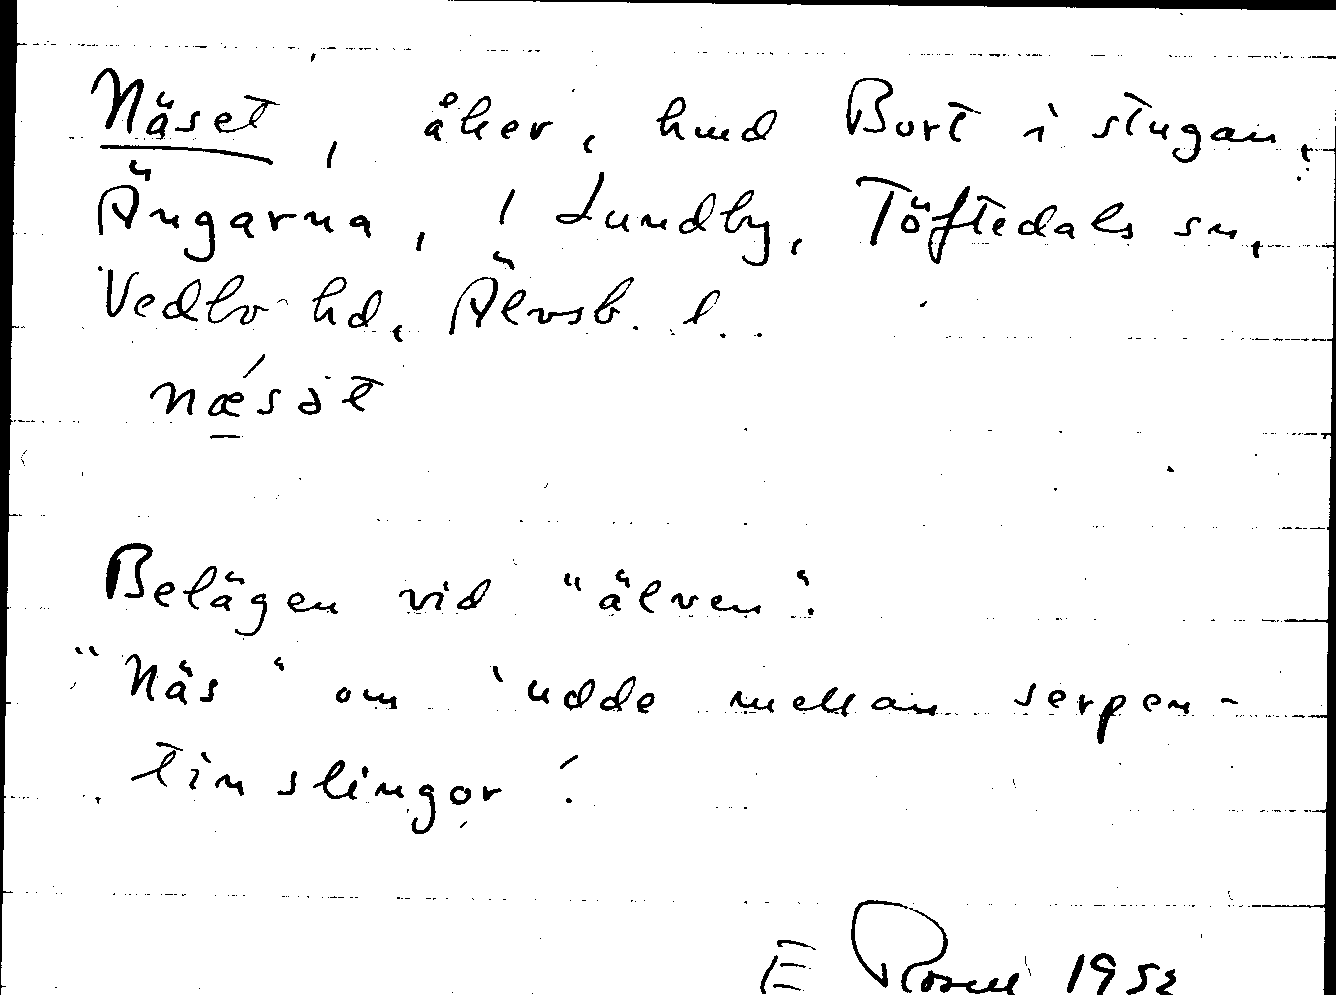 Näset, åker, hmd Bort i stugan,
Ängarna, 1 Lundby, Töftedals sn,
Vedbo hd, Älvsb. l..
nǽsət
Belägen vid "älven".
"Näs" om 'udde mellan serpen-
tinslingor'.
E Rosell 1952